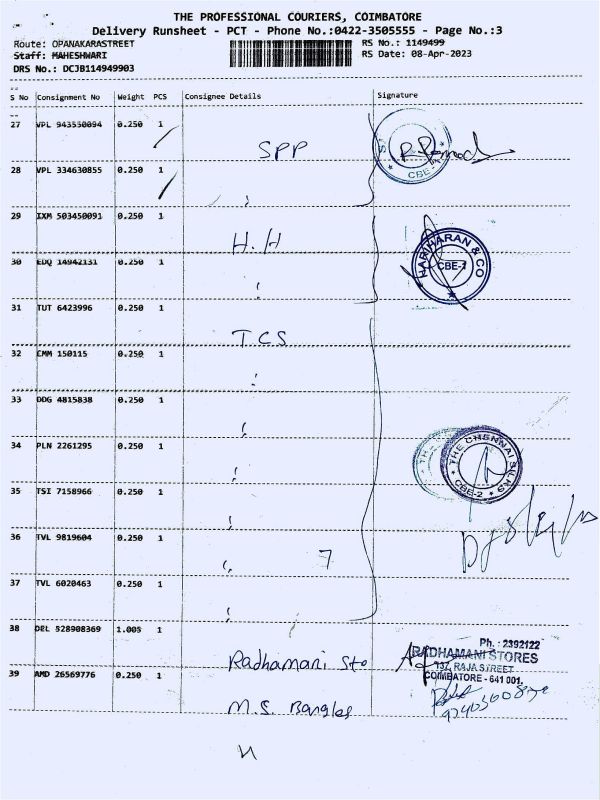 THE PROFESSIONAL COURIERS, COIMBATORE
Delivery Runsheet - PCT - Phone No.:0422-3505555 - Page No.:3
Route: OPANAKARASTREET RS No.: 1149499
Staff: MAHESHWARI RS Date: 08-Apr-2023
DRS No.: DCJB114949903
S No Consignment No Weight PCS Consignee Details Signature
27 VPL 943550094 0.250 1
SPP
28 VPL 334630855 0.250 1
29 IXM 503450091 0.250 1
H.H
HARIHARAN & CO
CBE-1
30 EDQ 14942131 0.250 1
31 TUT 6423996 0.250 1
TCS
32 CMM 150115 0.250 1
33 DDG 4815838 0.250 1
34 PLN 2261295 0.250 1
THE CHENNAI SILKS
CBE-2
35 TSI 7158966 0.250 1
36 TVL 9819604 0.250 1
7
37 TVL 6020463 0.250 1
38 DEL 528908369 1.005 1
Radhamani Sto
Ph. : 2392122
RADHAMANI STORES
137, RAJA STREET
COIMBATORE - 641 001.
39 AMD 26569776 0.250 1
M.S. Bangles